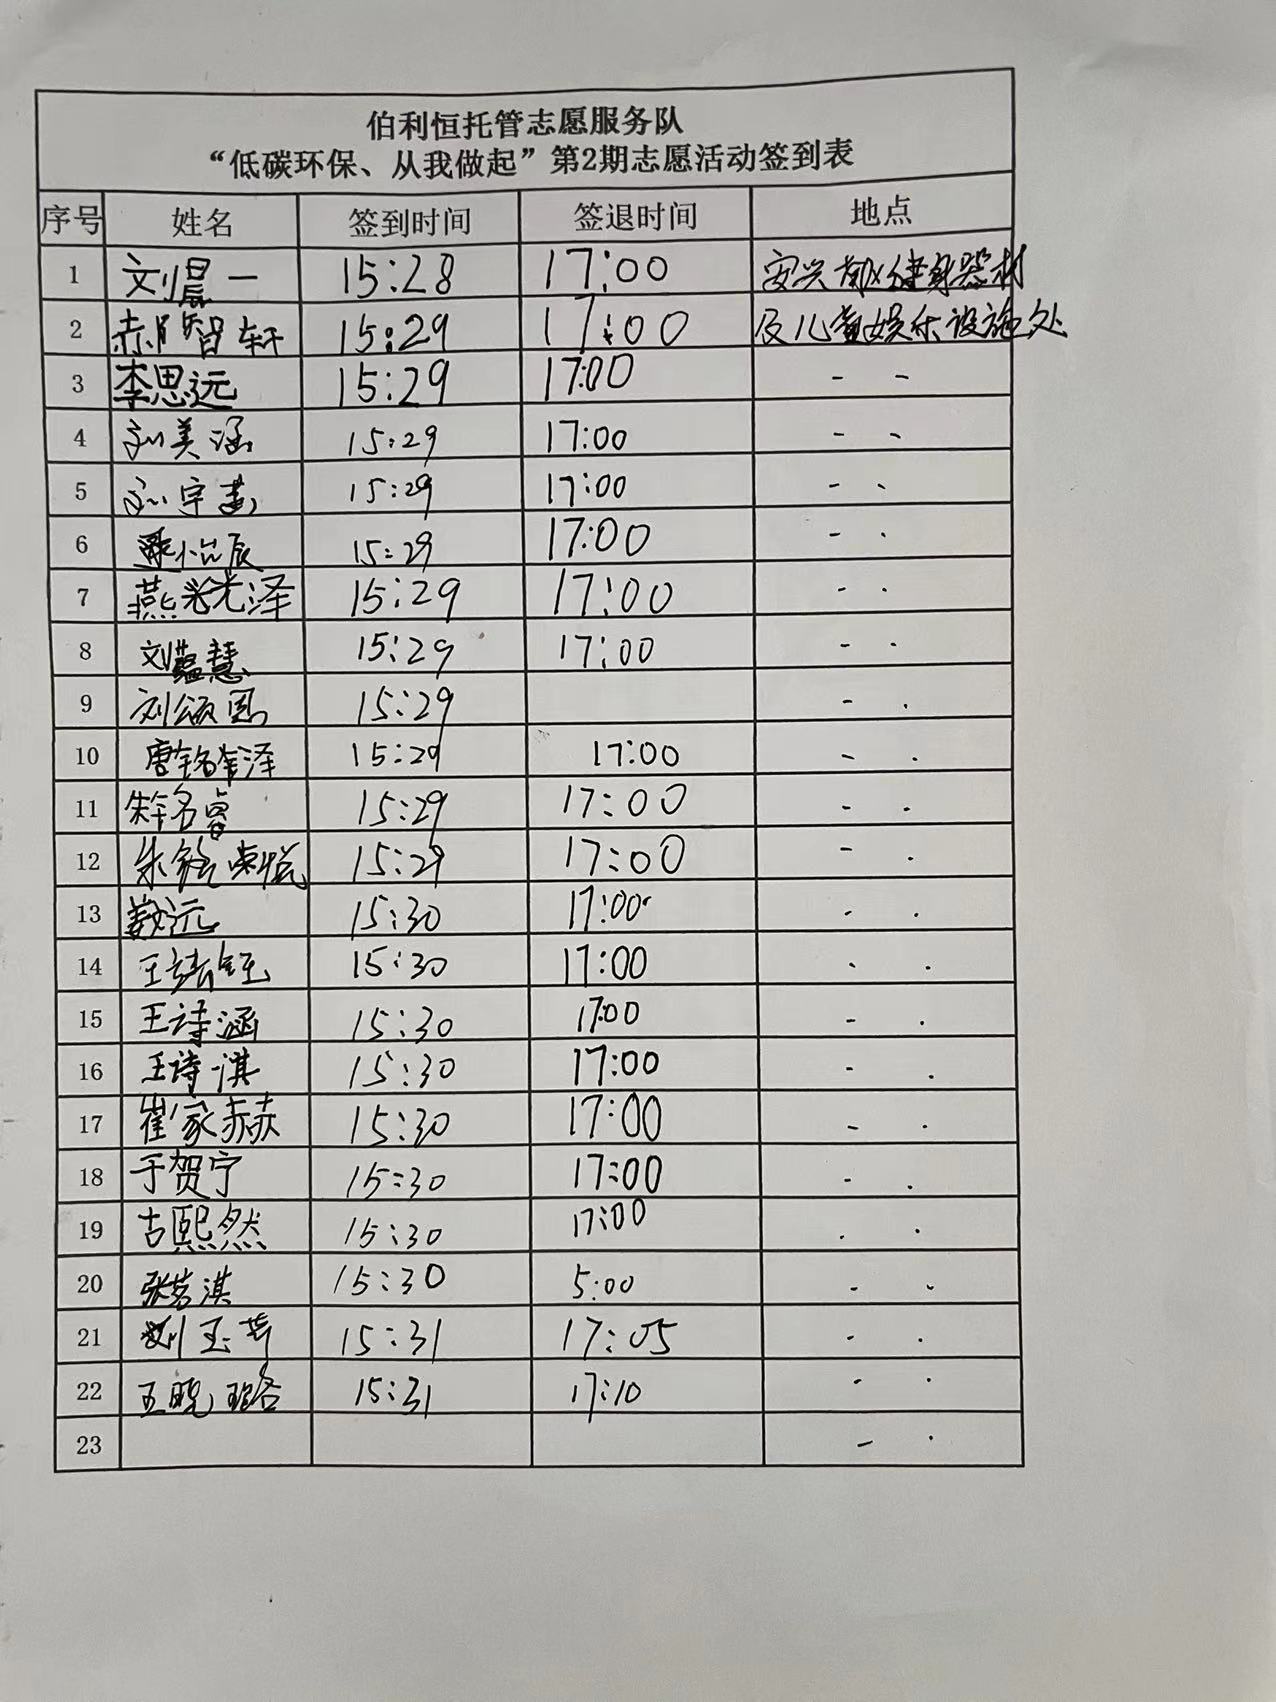 伯利恒托管志愿服务队
“低碳环保、从我做起”第2期志愿活动签到表
序号 姓名 签到时间 签退时间 地点
1 刘晨一 15:28 17:00 安兴南区健身器材
2 郝智轩 15:29 17:00 及儿童娱乐设施处
3 李思远 15:29 17:00 - -
4 刘美涵 15:29 17:00 - -
5 刘宇 15:29 17:00 - -
6 辰 15:29 17:00 - -
7 燕光泽 15:29 17:00 - -
8 刘蕴慧 15:29 17:00 - -
9 刘颂恩 15:29 - .
10 唐铭泽 15:29 17:00 - .
11 名睿 15:29 17:00 - .
12 朱悦 15:29 17:00 - .
13 远 15:30 17:00 - .
14 王靖钰 15:30 17:00 . .
15 王诗涵 15:30 17:00 - .
16 王诗淇 15:30 17:00 - .
17 崔家赫 15:30 17:00 - .
18 于贺宁 15:30 17:00 - .
19 古熙然 15:30 17:00 . .
20 张茗淇 15:30 5:00 - .
21 刘玉 15:31 17:05 - .
22 王晓璐 15:31 17:10 - .
23 - .